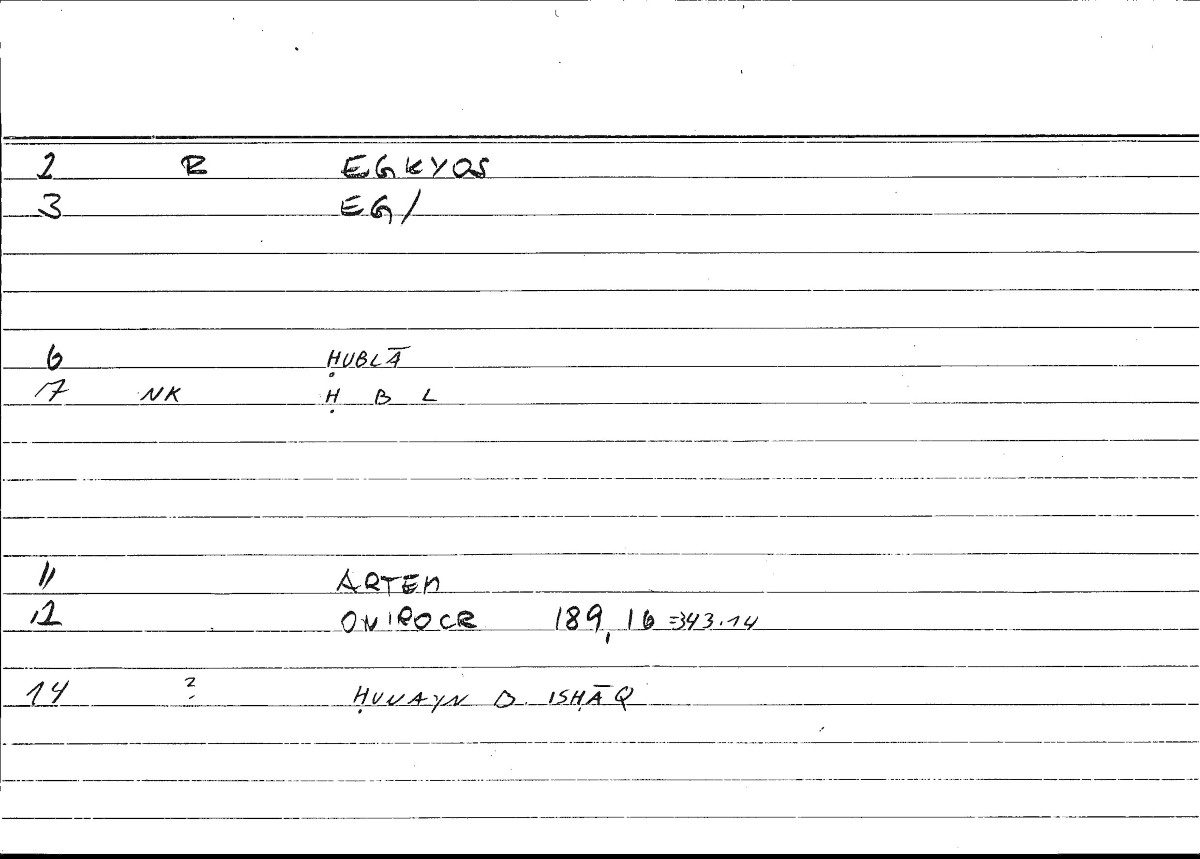 2 R EGKYOS
3 EG/
6 ḤUBLĀ
7 NK Ḥ B L
11 ARTEM
12 ONIROCR 189,16 =343.14
14 2 ḤUNAYN B. ISḤĀQ